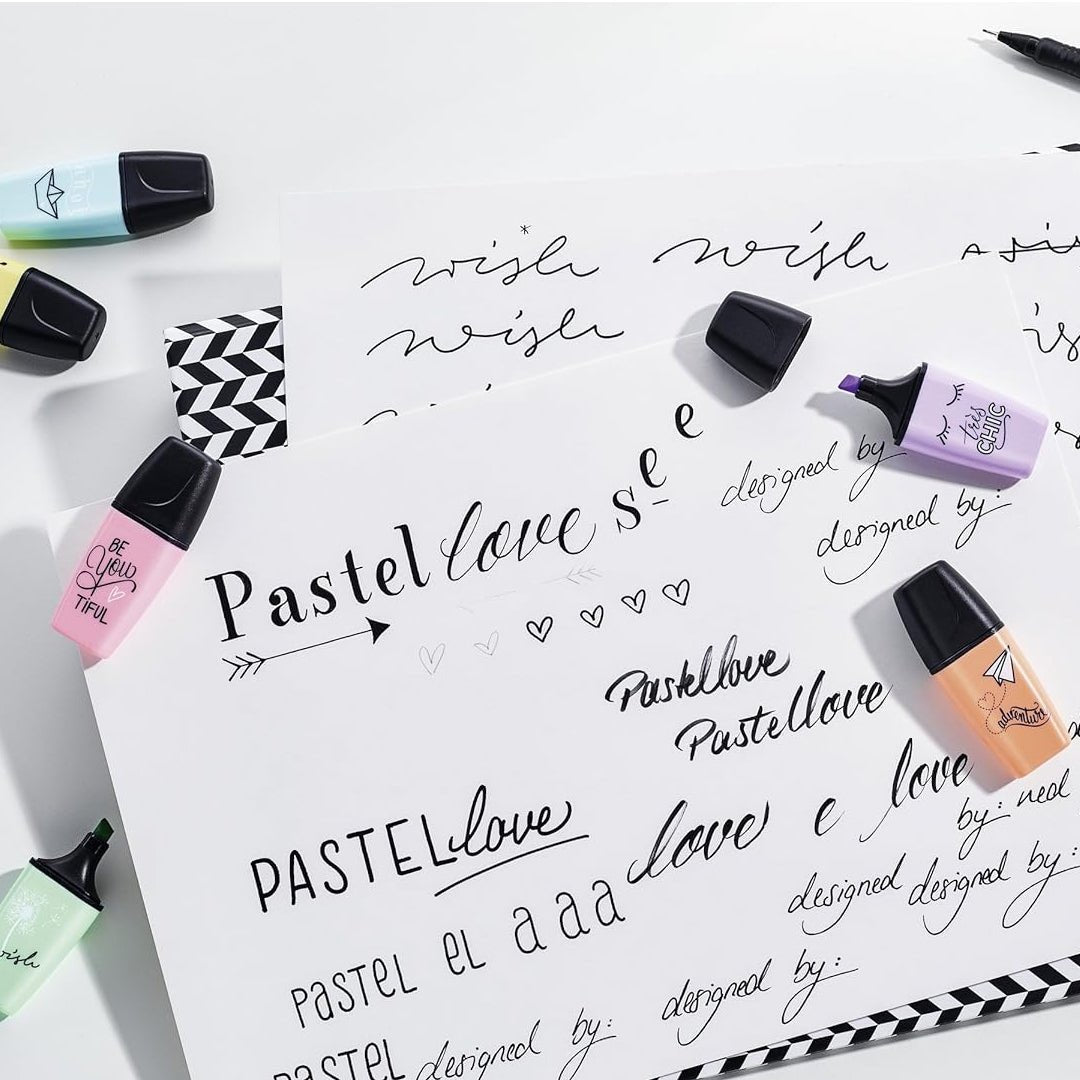 ahoi
wish wish
wish
très
CHIC
designed by
designed by:
BE
YOU
TiFUL
Pastel love s e e
Pastellove
Pastellove
adventure
PASTEL love
love e love
by: ned
PASTEL EL a a a
designed designed by:
designed by:
PASTEL designed by:
wish